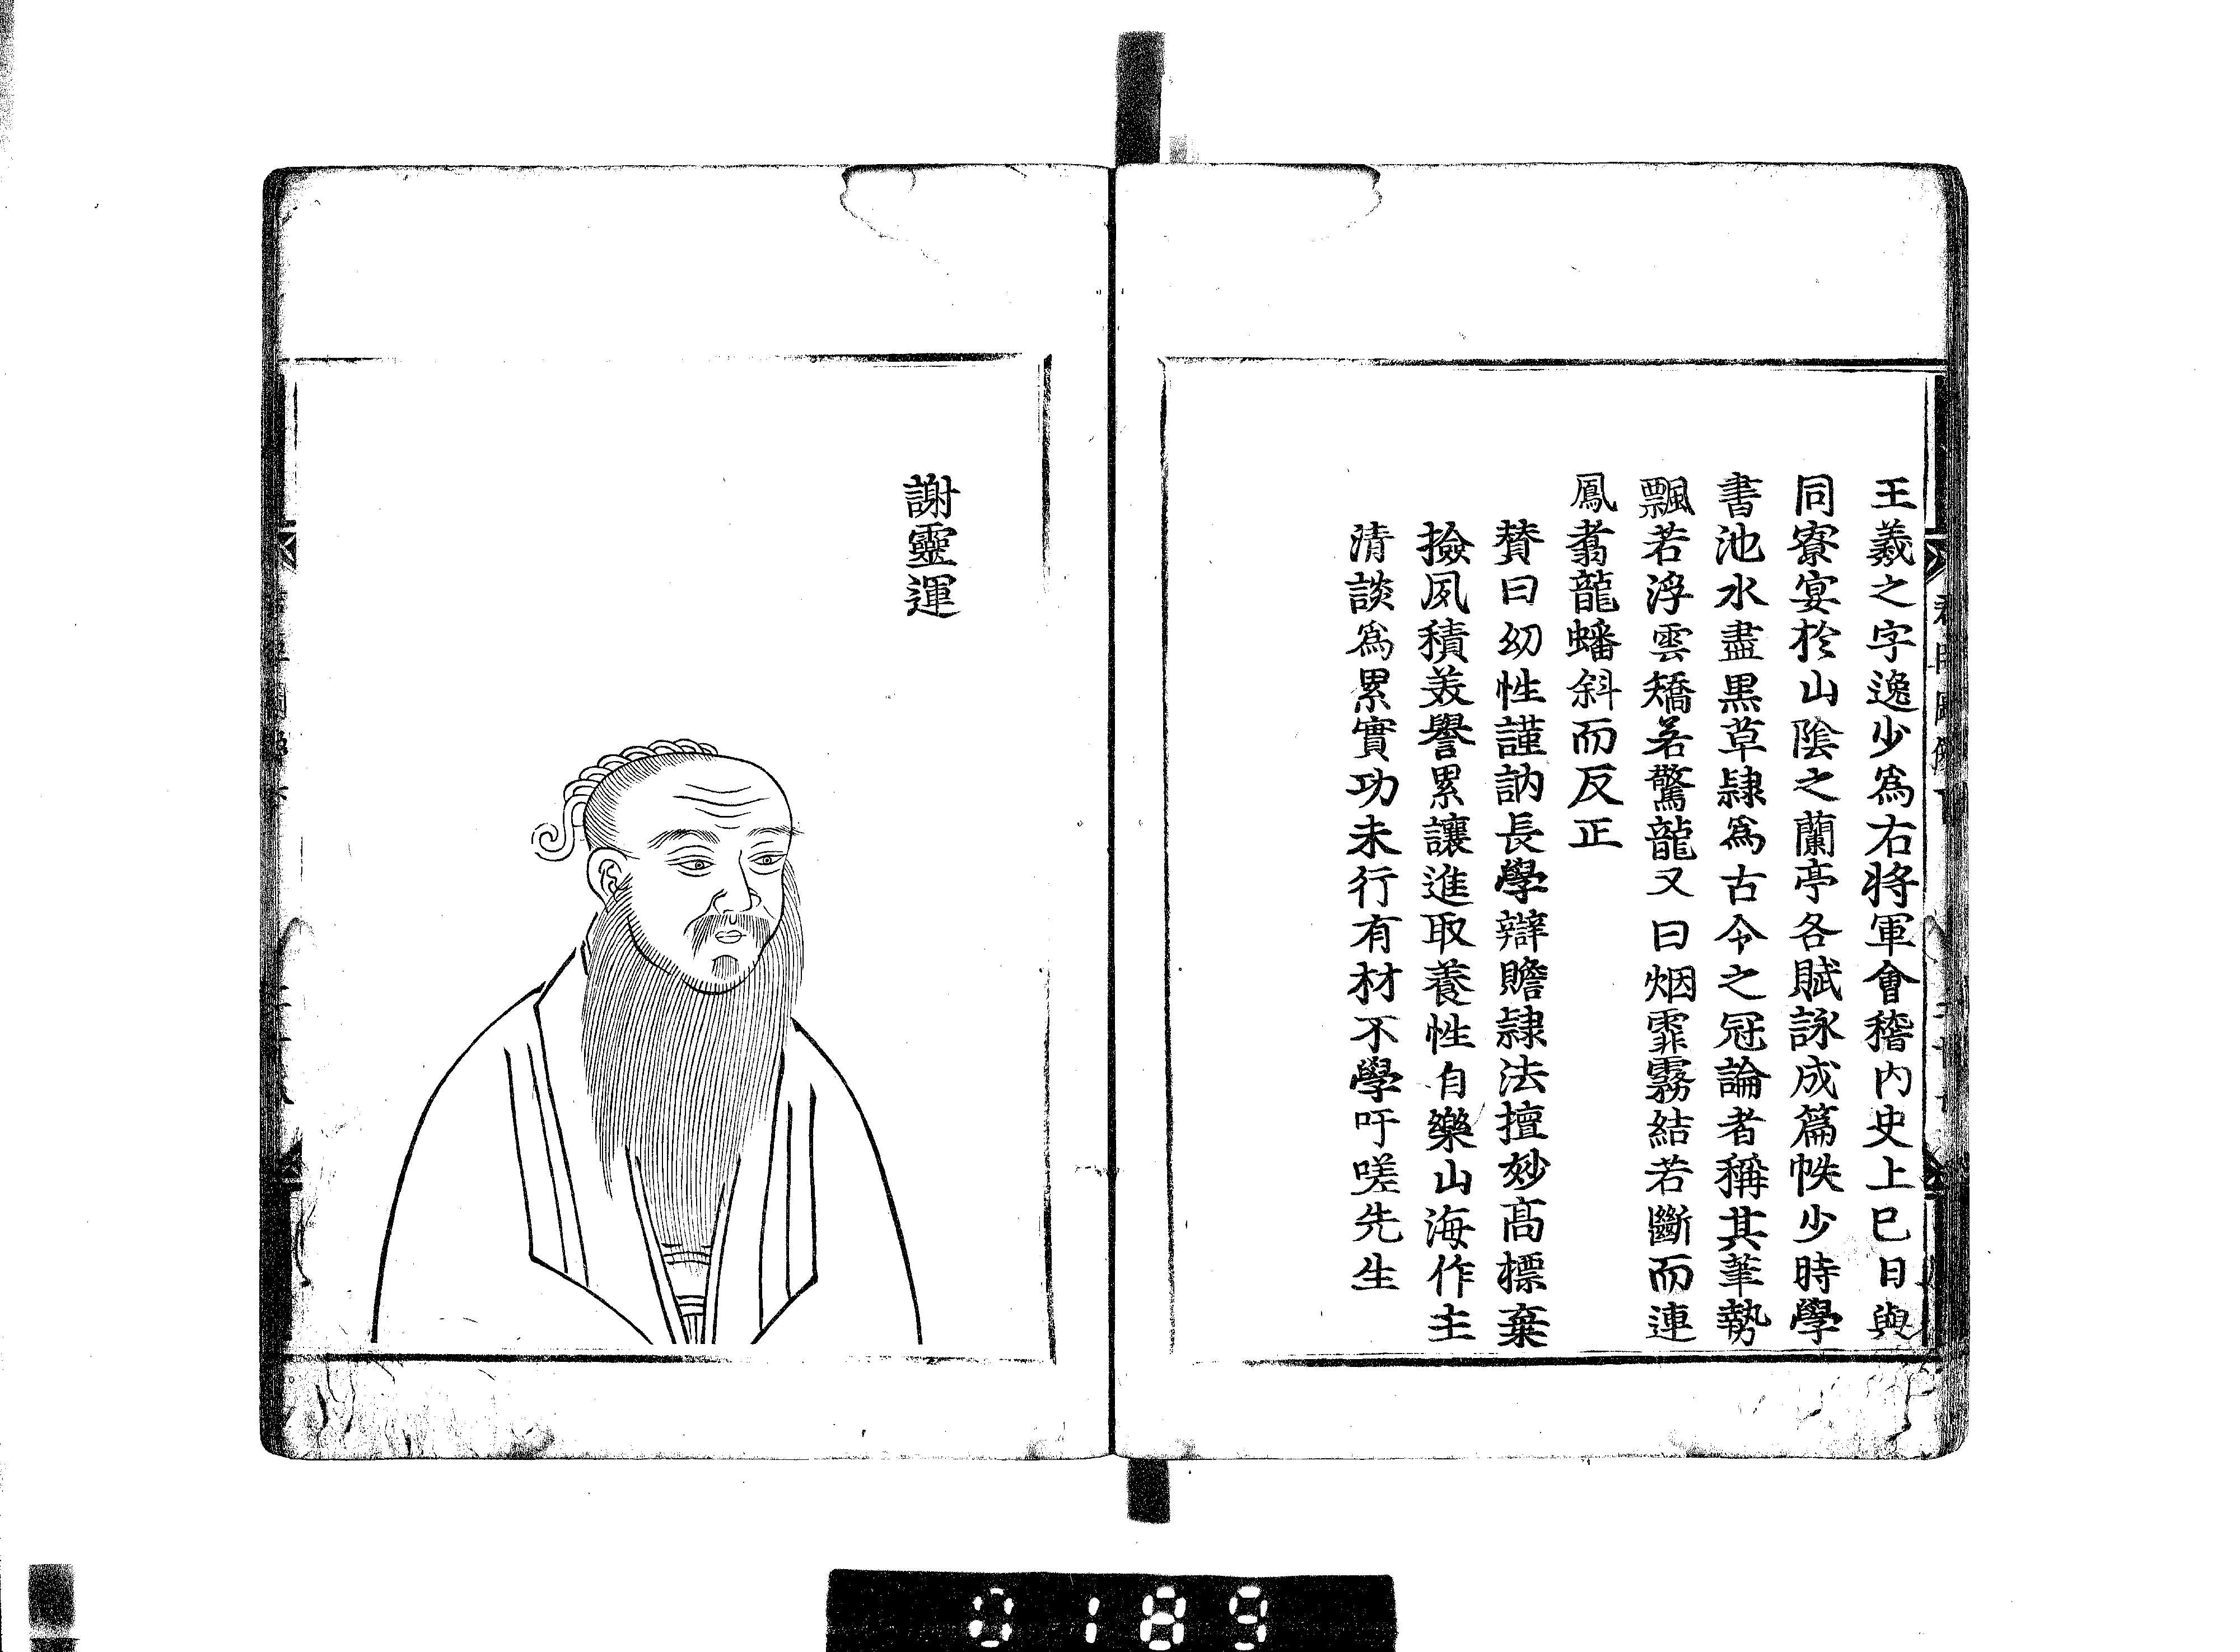 王羲之字逸少為右將軍會稽內史上巳日與
同寮宴於山陰之蘭亭各賦詠成篇帙少時學
書池水盡黒草隷為古今之冠論者稱其筆勢
飄若浮雲矯若驚龍又曰烟霏霧結若斷而連
鳳翥龍蟠斜而反正
賛曰幼性謹訥長學辯贍隷法擅妙高標棄
撿夙積美譽累讓進取養性自樂山海作主
清談為累實功未行有材不學吁嗟先生
謝靈運
0189